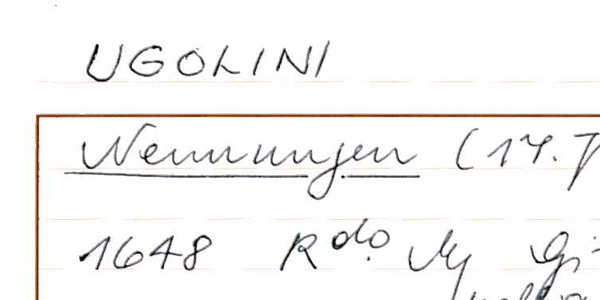 UGOLINI
Nennungen (17. J
1648 R do. Mg Gi